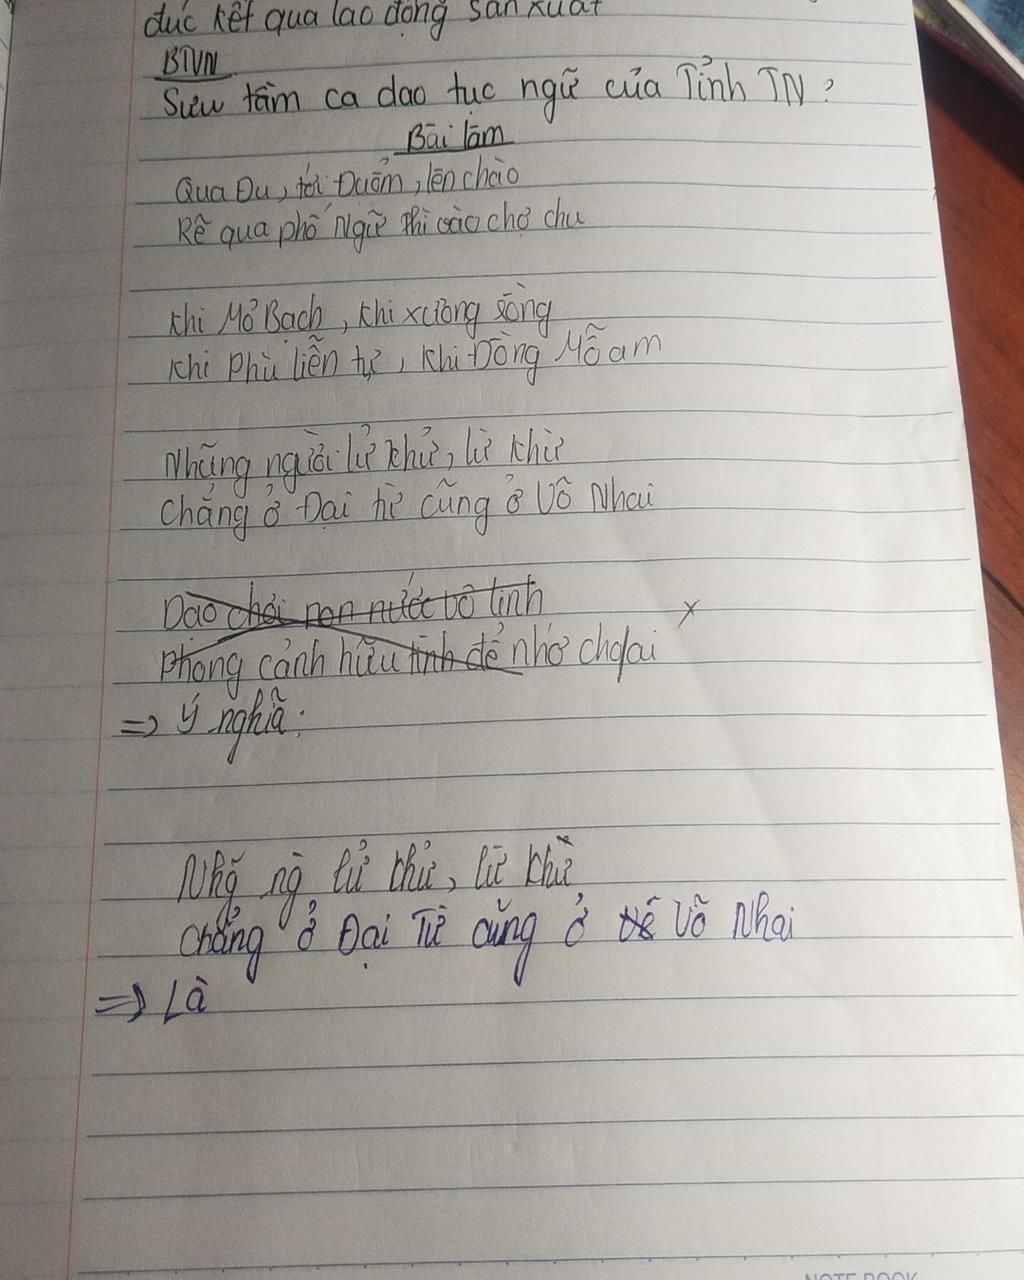 đúc kết qua lao động sản xuất
BTVN
Sưu tầm ca dao tục ngữ của Tỉnh TN?
Bài làm
Qua Đu, tới Đuổm, lên chào
Rẽ qua phố Ngữ thì vào chợ chu
Khi Mỏ Bạch, khi xương sông
Khi Phù liễn tự, khi Đồng Mỗ am
Những người lử khử, lừ khừ
Chẳng ở Đại từ cũng ở Võ Nhai
Dạo chơi non nước vô tình
Phong cảnh hữu tình để nhớ cho ai
=> Ý nghĩa:
Nhg̃ ng̀ lử khử, lừ khừ
Chẳng ở Đại Từ cũng ở Võ Nhai
=> Là
NOTE BOOK